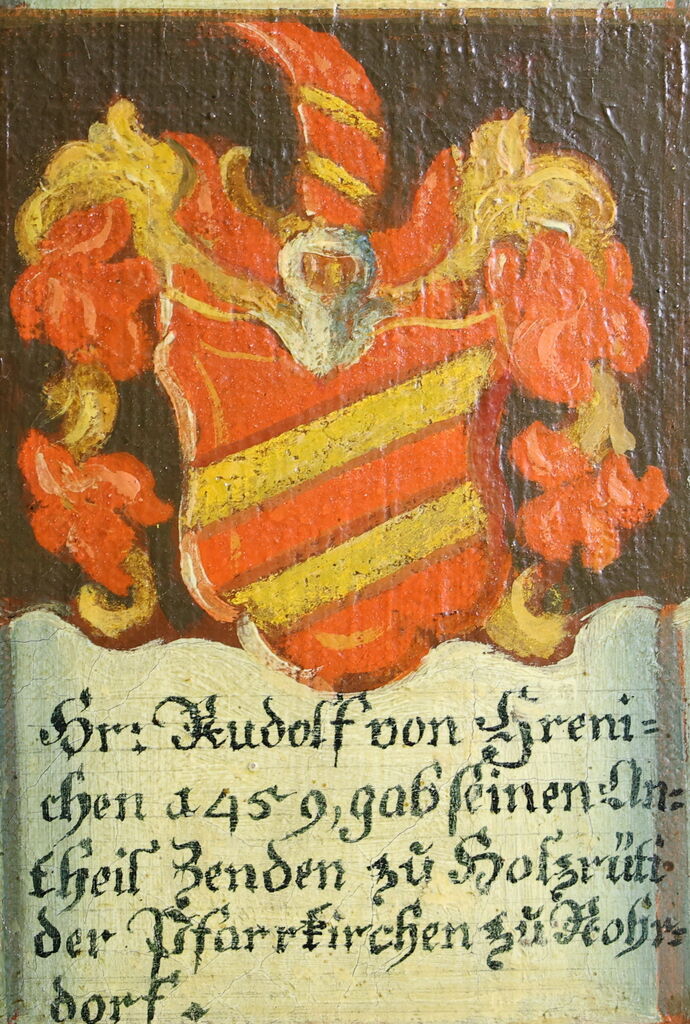 Hr: Rudolf von Greni=
chen a 1459, gab seinen An=
theil Zenden zů Holzrüti
der Pfarrkirchen zů Rohr=
dorf.